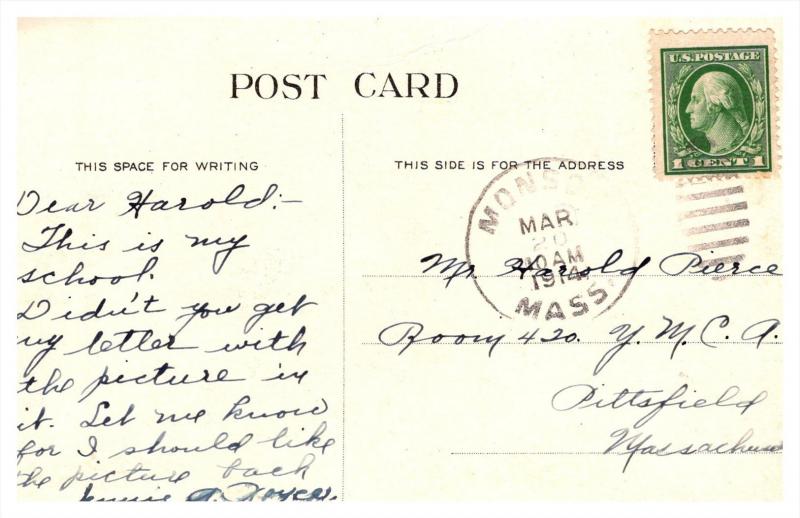 POST CARD
THIS SPACE FOR WRITING
Dear Harold:-
This is my
school.
Didn't you get
my letter with
the picture in
it. Let me know
for I should like
the picture back
THIS SIDE IS FOR THE ADDRESS
U.S. POSTAGE
1 CENT 1
MAR
20
10AM
1914
MASS.
Mr. Harold Pierce
Room 420. Y. M. C. A.
Pittsfield
Massachus